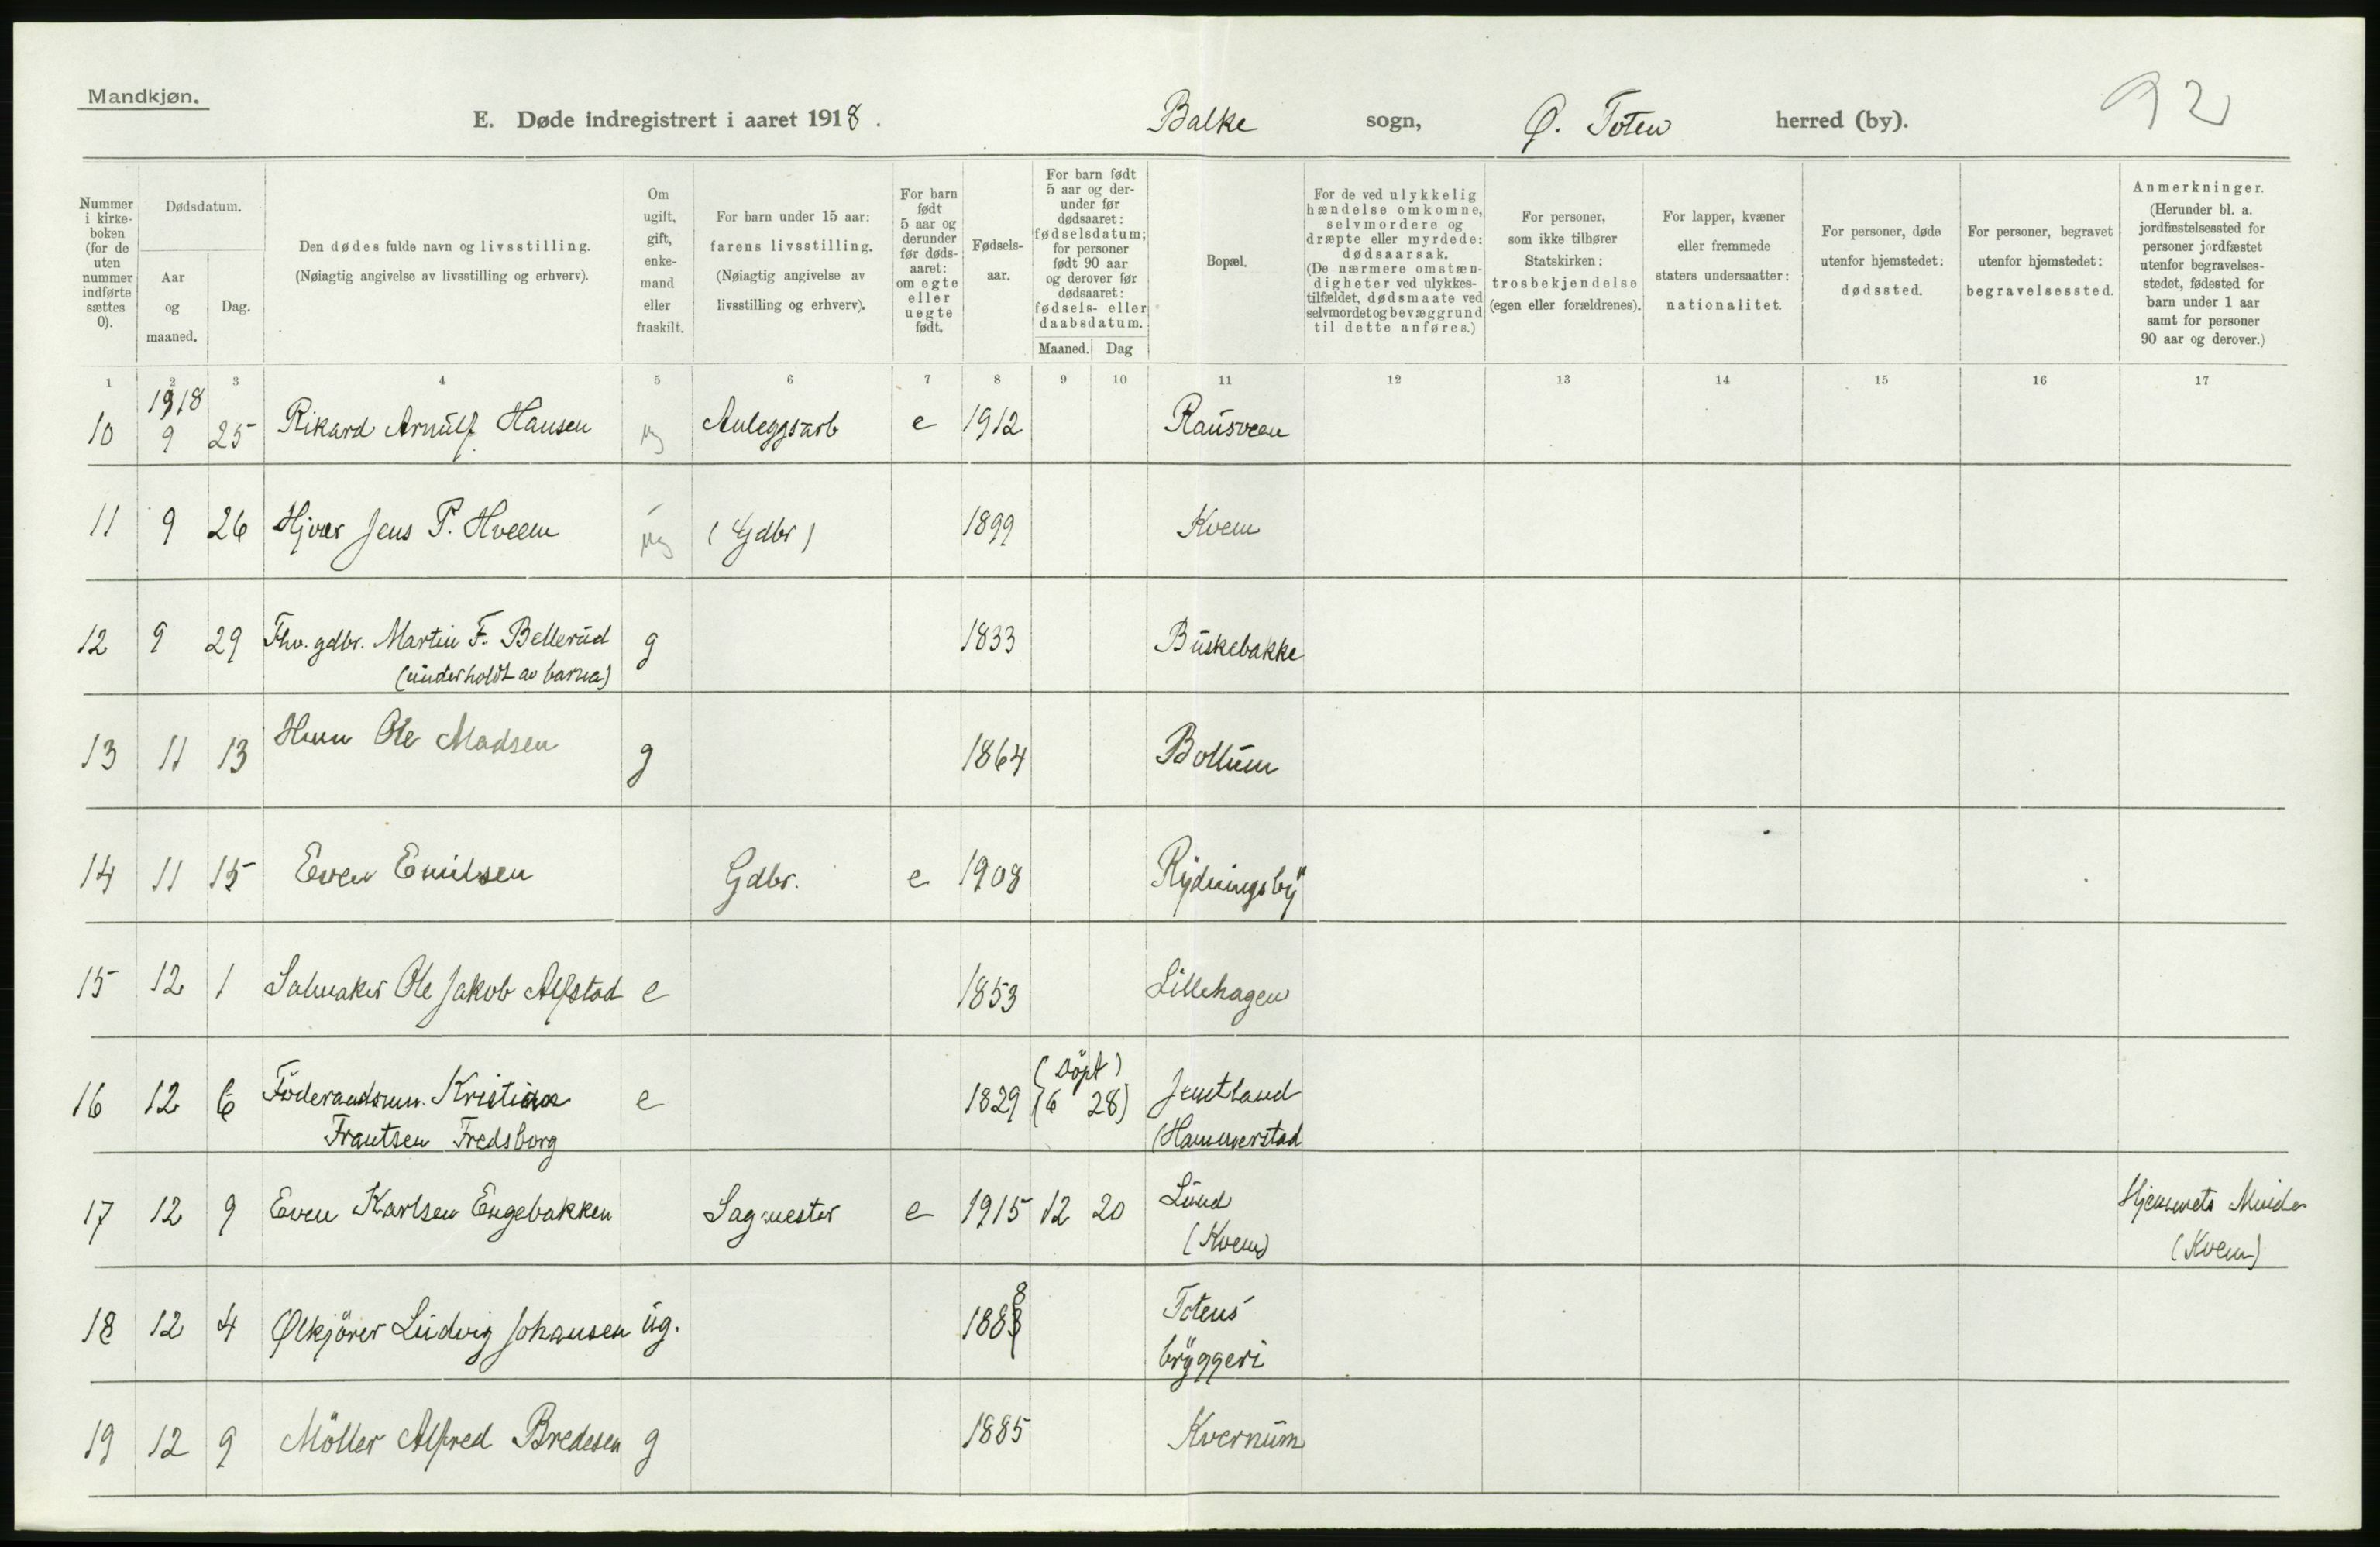 Mandkjøn.
E. Døde indregistrert i aaret 1918. Balke sogn, Ø. Toten herred (by).
92
Nummer i kirkeboken (for de uten nummer indførte sættes 0).
Dødsdatum.
Aar og maaned.
Dag.
Den dødes fulde navn og livsstilling.
(Nøiagtig angivelse av livsstilling og erhverv).
Om ugift, gift, enkemand eller fraskilt.
For barn under 15 aar: farens livsstilling.
(Nøiagtig angivelse av livsstilling og erhverv).
For barn født 5 aar og derunder før dødsaaret: om egte eller uegte født.
Fødselsaar.
For barn født 5 aar og derunder før dødsaaret: fødselsdatum; for personer født 90 aar og derover før dødsaaret: fødsels- eller daabsdatum.
Maaned. Dag
Bopæl.
For de ved ulykkelig hændelse omkomne, selvmordere og dræpte eller myrdede: dødsaarsak.
(De nærmere omstændigheter ved ulykkestilfældet, dødsmaate ved selvmordet og bevæggrund til dette anføres.)
For personer, som ikke tilhører Statskirken: trosbekjendelse (egen eller forældrenes).
For lapper, kvæner eller fremmede staters undersaatter: nationalitet.
For personer, døde utenfor hjemstedet: dødssted.
For personer, begravet utenfor hjemstedet: begravelsessted.
Anmerkninger.
(Herunder bl. a. jordfæstelsessted for personer jordfæstet utenfor begravelsesstedet, fødested for barn under 1 aar samt for personer 90 aar og derover.)
1 2 3 4 5 6 7 8 9 10 11 12 13 14 15 16 17
1918
10 9 25 Rikard Arnulf Hansen ug Anleggsarb e 1912 Rausveen
11 9 26 Jens P. Hveem ug (Gdbr) 1899 Kvem
12 9 29 Fhv. gdbr. Martin F. Bellerud g 1833 Buskebakke
(underholdt av barna)
13 11 13 Ole Madsen g 1864 Bollum
14 11 15 Even Emilsen Gdbr. e 1908 Rydningsby
15 12 1 Salmaker Ole Jakob Alfstad e 1853 Lillehagen
(Döpt)
16 12 6 Föderaadsmn. Kristian e 1829 (6 28) Jemtland
Frantsen Fredsborg (Hammerstad
17 12 9 Even Karlsen Engebakken Sagmester e 1915 12 20 Lund Hjemmets Minde
(Kvem) (Kvem)
18 12 4 Ølkjörer Ludvig Johansen ug. 1888 Totens
bryggeri
19 12 9 Möller Alfred Bredesen g 1885 Kvernum